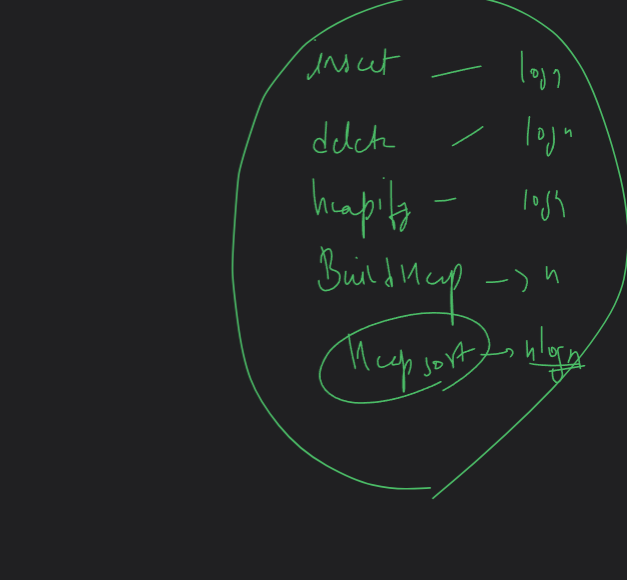 insert — logn
delete — logn
heapify — logn
BuildHeap → n
Heap sort → nlogn